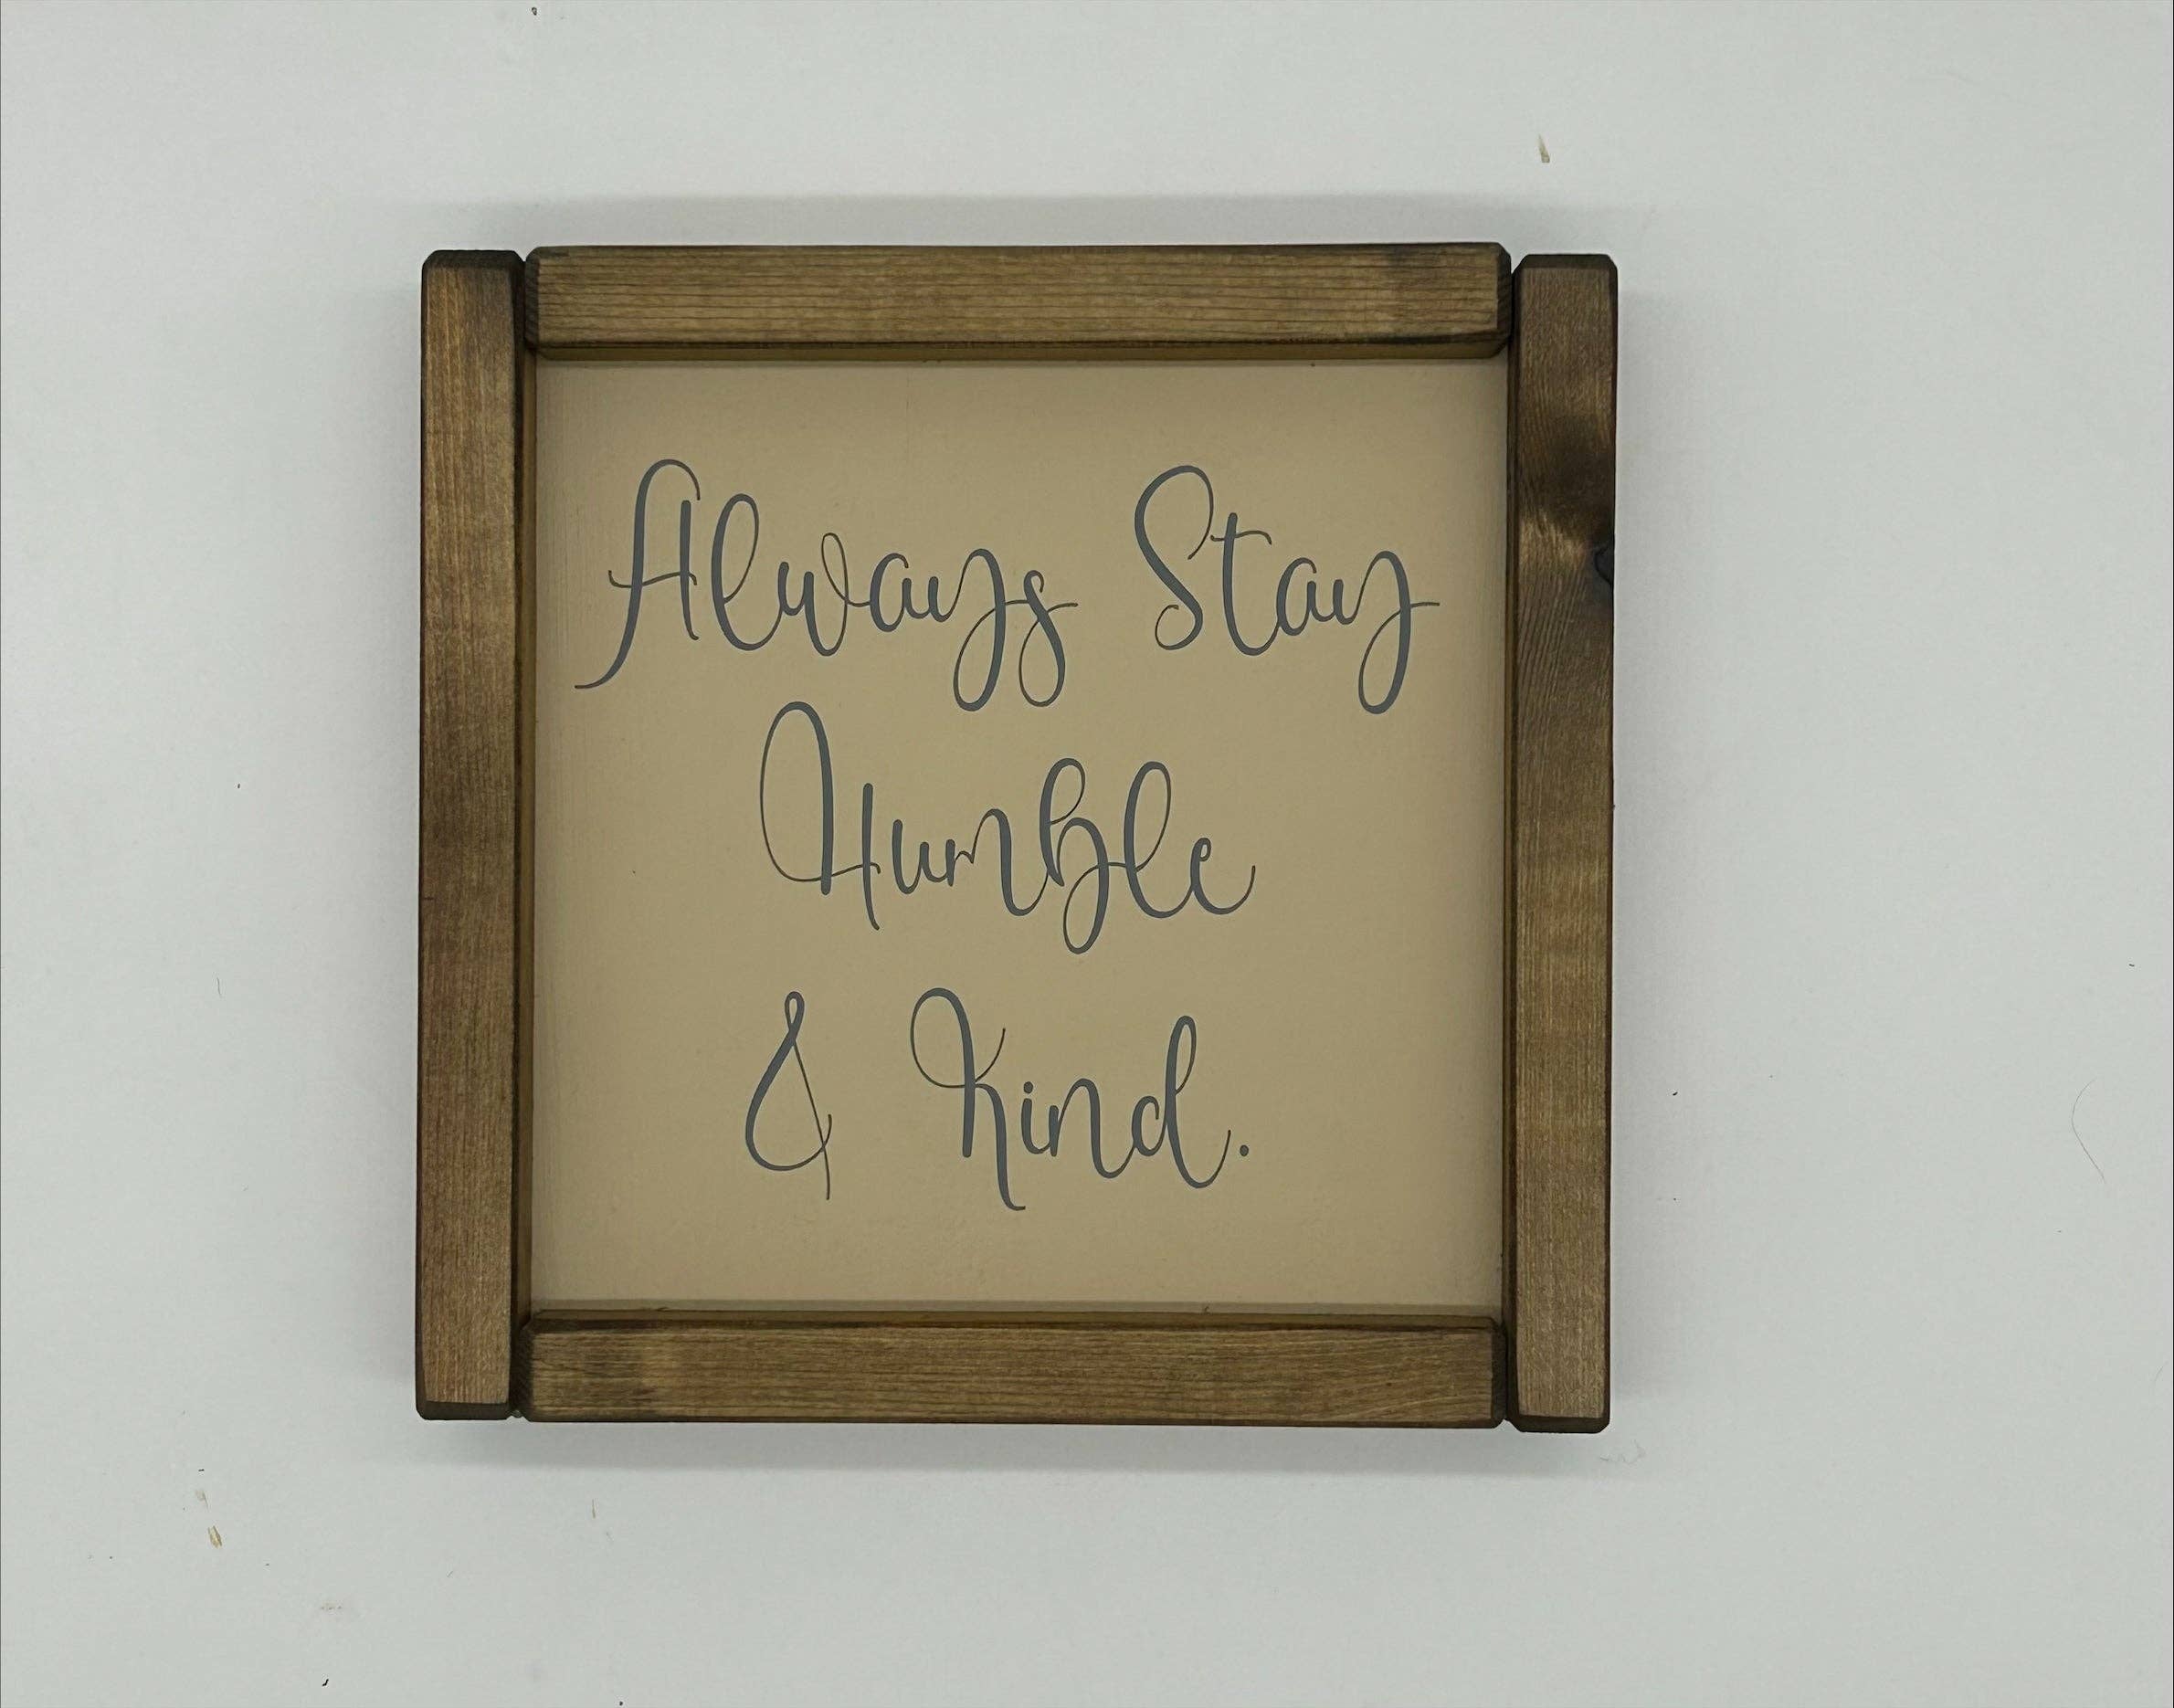 Always Stay
Humble
& Kind.